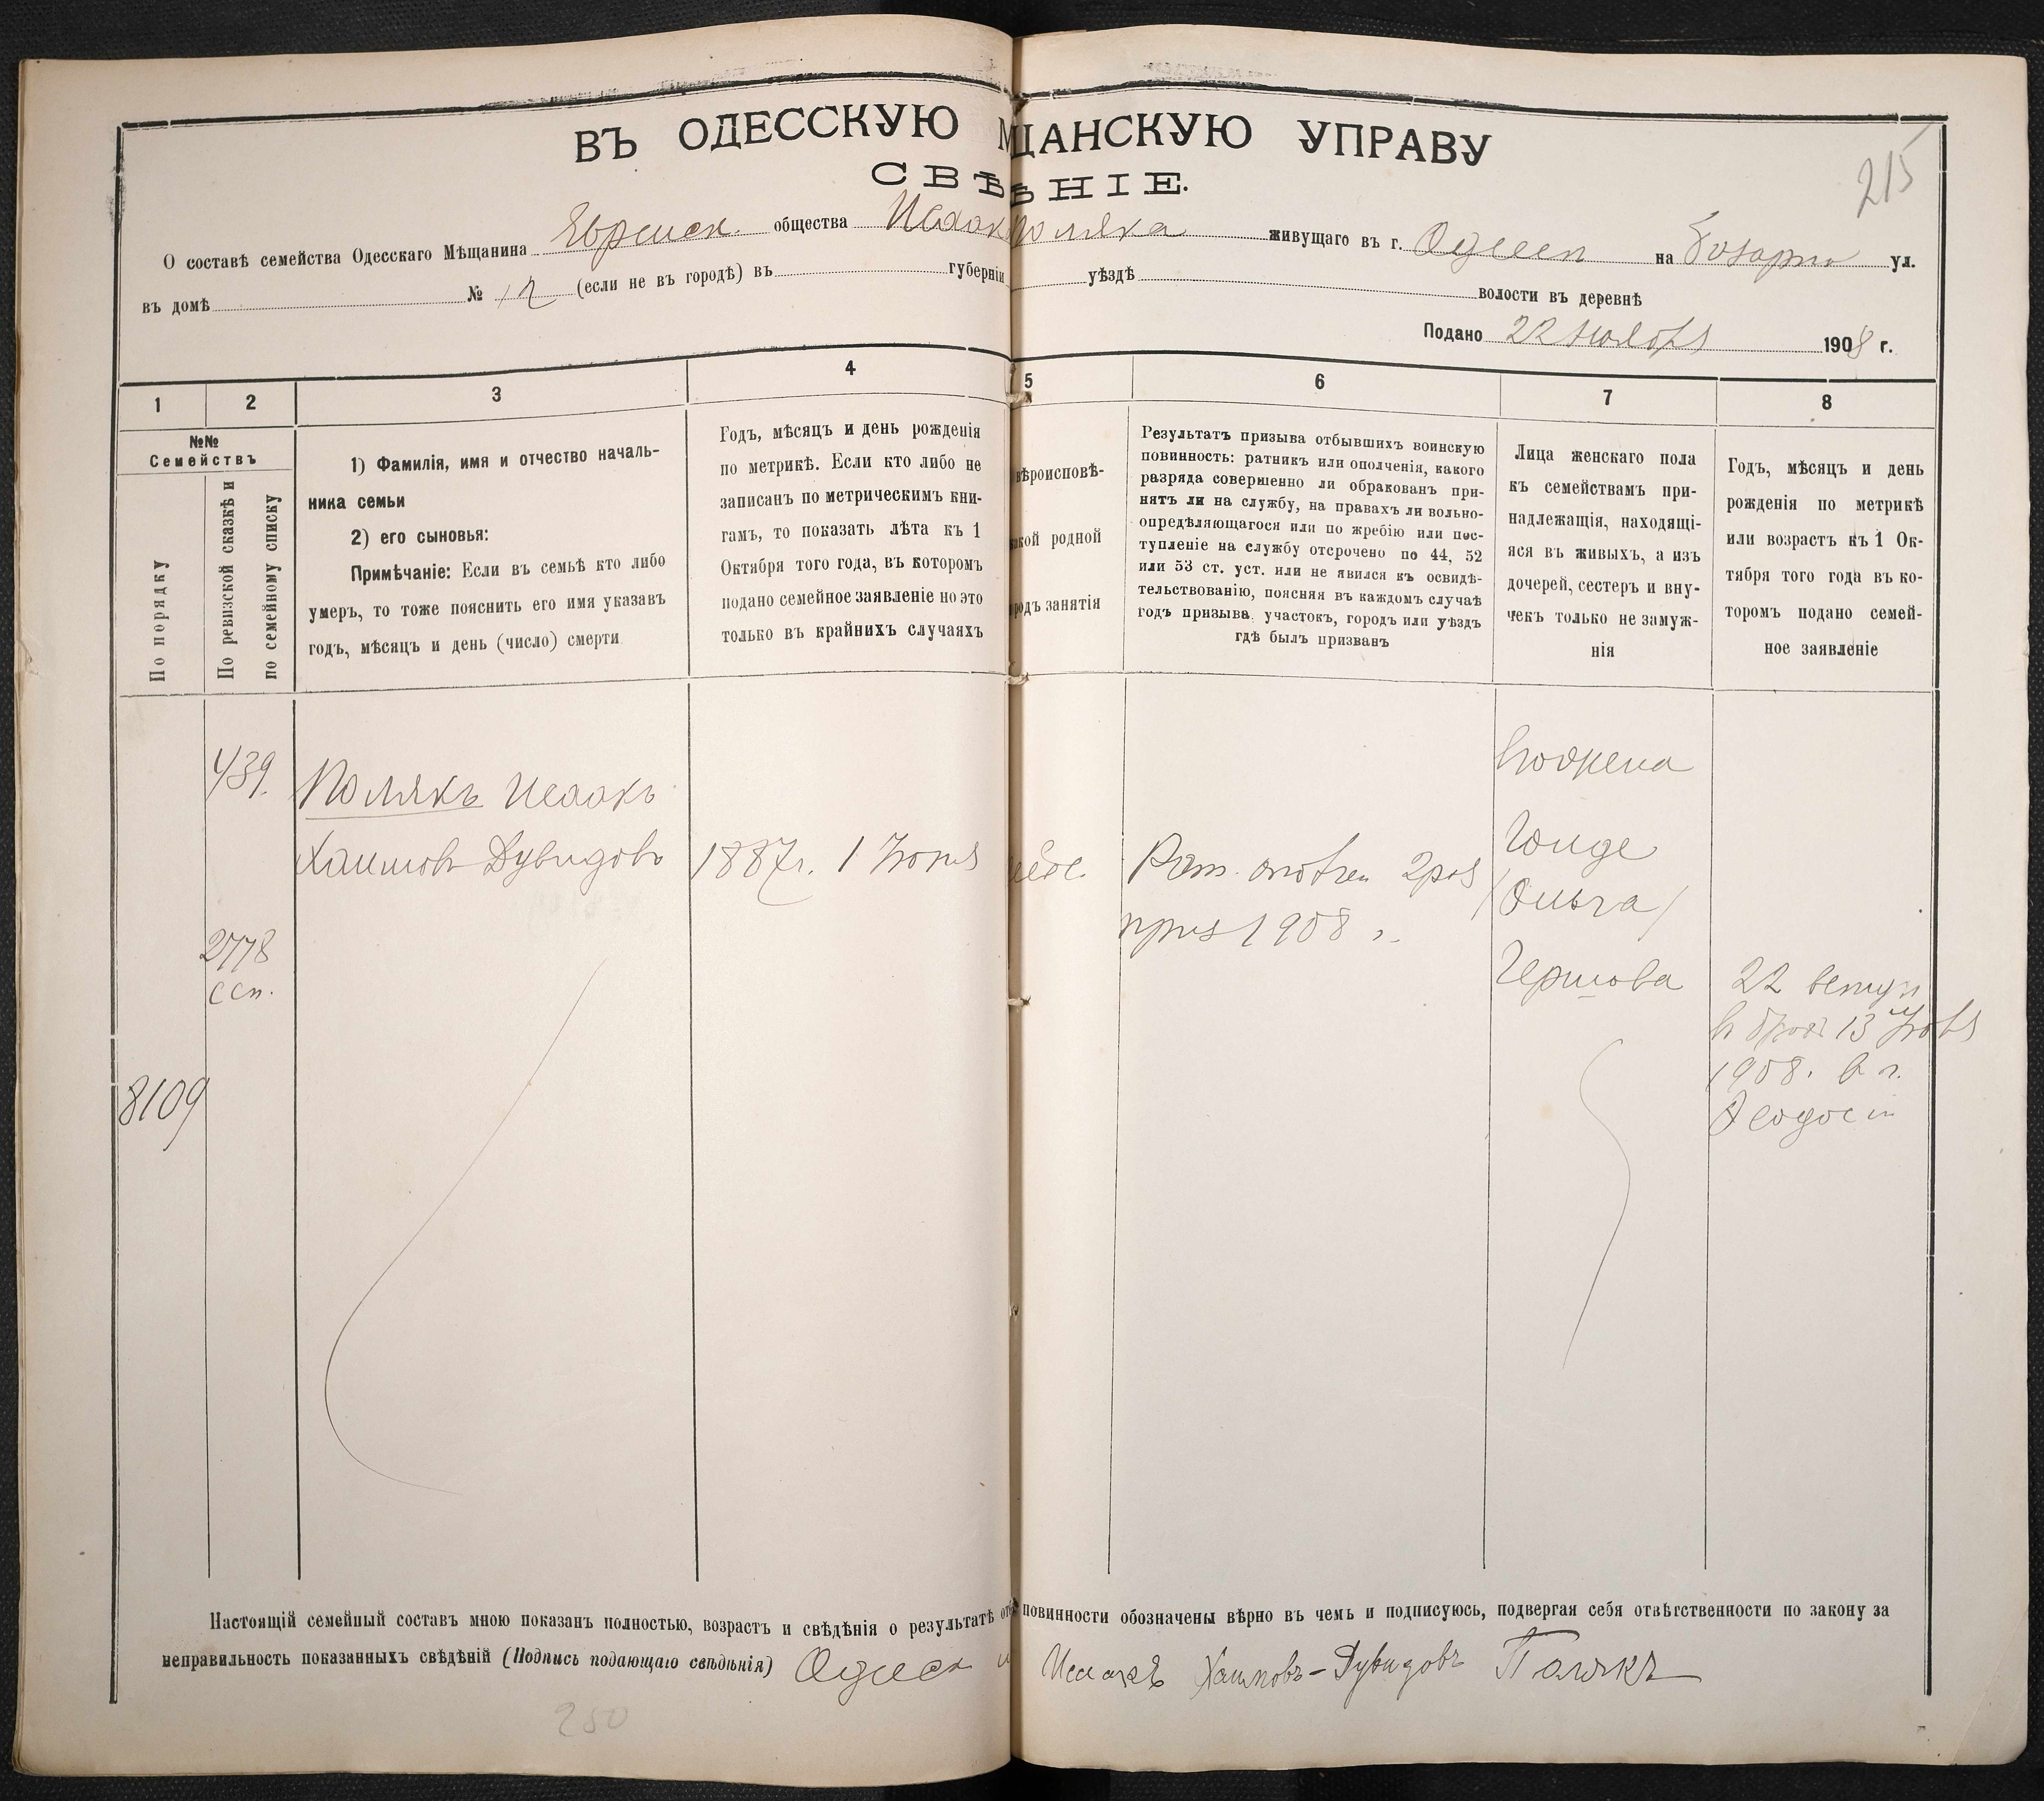 ВЪ ОДЕССКУЮ МЩАНСКУЮ УПРАВУ
СВѢѢНІЕ.
215
О составѣ семейства Одесскаго Мѣщанина Еврейск. общества Исаака Поляка живущаго въ г. Одессѣ на Базарн ул.
въ домѣ № 12 (если не въ городѣ) въ губерніи уѣздѣ волости въ деревнѣ
Подано 22 Ноября 1908 г.
1 2 3 4 5 6 7 8
№№
Семействъ
По порядку
По ревизской сказкѣ и
по семейному списку
1) Фамилія, имя и отчество началь-
ника семьи
2) его сыновья:
Примѣчаніе: Если въ семьѣ кто либо
умеръ, то тоже пояснить его имя указавъ
годъ, мѣсяцъ и день (число) смерти
Годъ, мѣсяцъ и день рожденія
по метрикѣ. Если кто либо не
записанъ по метрическимъ кни-
гамъ, то показать лѣта къ 1
Октября того года, въ которомъ
подано семейное заявленіе но это
только въ крайнихъ случаяхъ
вѣроисповѣ-
акой родной
родъ занятія
Результатъ призыва отбывшихъ воинскую
повинность: ратникъ или ополченія, какого
разряда совершенно ли обракованъ при-
нятъ ли на службу, на правахъ ли вольно-
опредѣляющагося или по жребію или пос-
тупленіе на службу отсрочено по 44, 52
или 53 ст. уст. или не явился къ освидѣ-
тельствованію, поясняя въ каждомъ случаѣ
годъ призыва, участокъ, городъ или уѣздъ
гдѣ былъ призванъ
Лица женскаго пола
къ семействамъ при-
надлежащія, находящі-
яся въ живыхъ, а изъ
дочерей, сестеръ и вну-
чекъ только не замуж-
нія
Годъ, мѣсяцъ и день
рожденія по метрикѣ
или возрастъ къ 1 Ок-
тября того года въ ко-
торомъ подано семей-
ное заявленіе
439.
Полякъ Исаакъ
Хаимовъ Дувидовъ
1887г. 1 Іюня
Рат. ополчен 2раз
приз 1908 г.
его жена
Гольде
/Ольга/
Гершова
2778
ссп.
22 вступ
в брак 13 Янв
1908. в г.
Ѳеодосіи
8109
Настоящій семейный составъ мною показанъ полностью, возрастъ и свѣдѣнія о результатѣ повинности обозначены вѣрно въ чемъ и подписуюсь, подвергая себя отвѣтственности по закону за
неправильность показанныхъ свѣдѣній (Подпись подающаго свѣдѣнія) Одесск Исаакъ Хаимовъ-Дувидовъ Полякъ
250